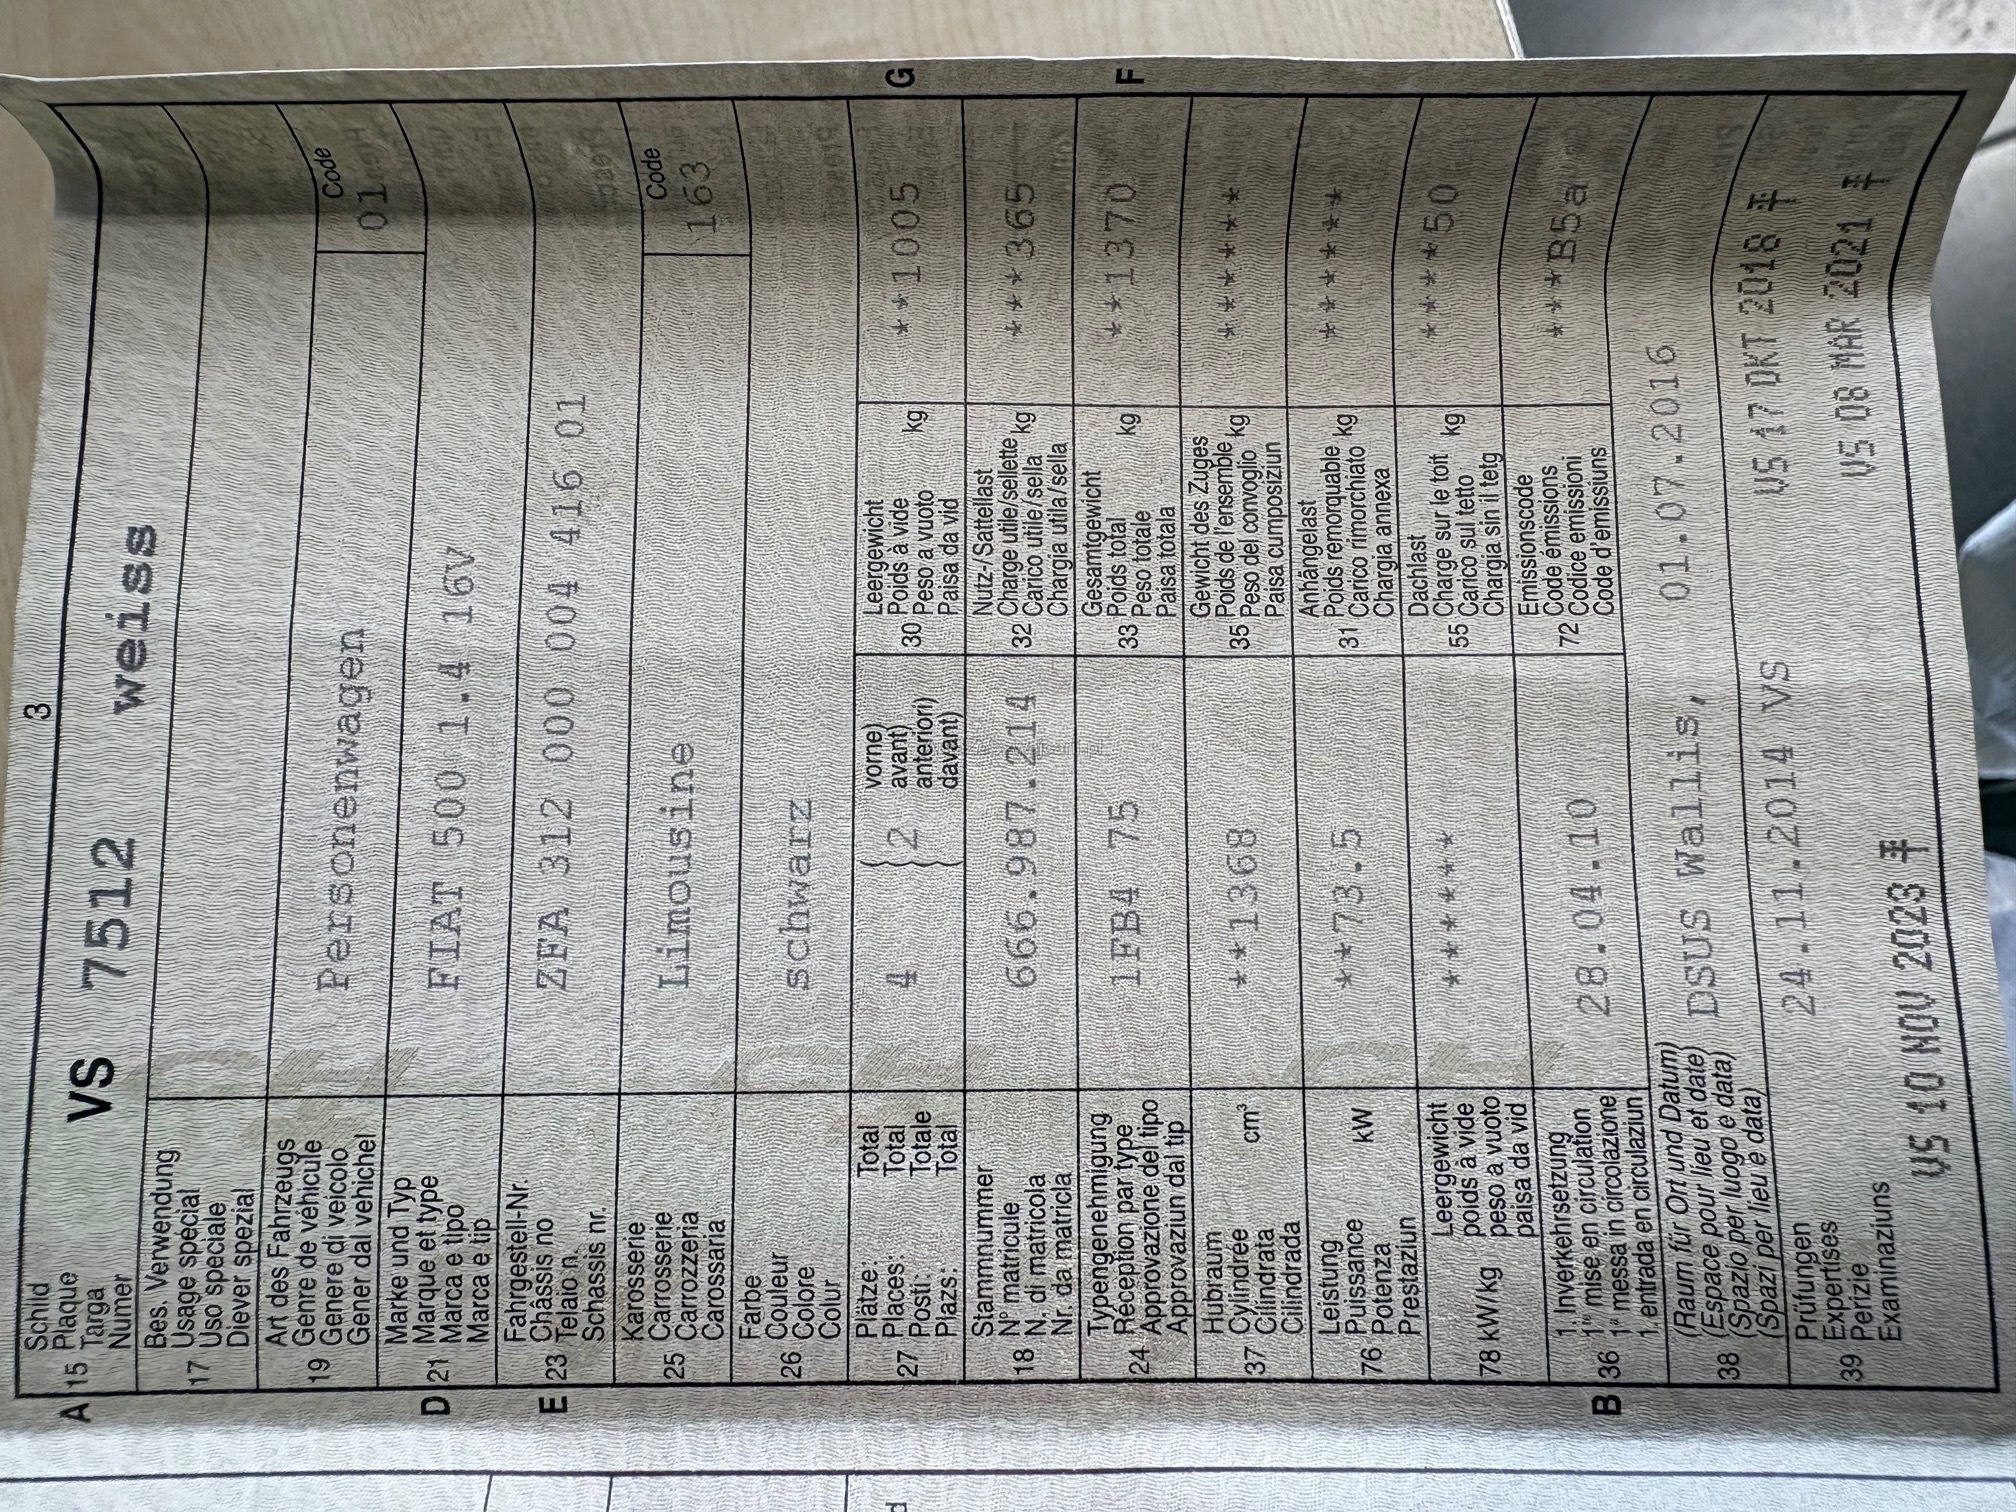 3
A 15 Schild
Plaque
Targa
Numer
VS 7512 weiss
17 Bes. Verwendung
Usage spécial
Uso speciale
Diever spezial
19 Art des Fahrzeugs
Genre de véhicule
Genere di veicolo
Gener dal vehichel
Personenwagen
Code
01
D 21 Marke und Typ
Marque et type
Marca e tipo
Marca e tip
FIAT 500 1.4 16V
E 23 Fahrgestell-Nr.
Châssis no
Telaio n.
Schassis nr.
ZFA 312 000 004 416 01
25 Karosserie
Carrosserie
Carrozzeria
Carossaria
Limousine
Code
163
26 Farbe
Couleur
Colore
Colur
schwarz
27 Plätze: Total
Places: Total
Posti: Totale
Plazs: Total
4 { 2 vorne)
avant)
anteriori)
davant)
30 Leergewicht
Poids à vide
Peso a vuoto kg
Paisa da vid
**1005
G
18 Stammnummer
N° matricule
N. di matricola
Nr. da matricla
666.987.214
32 Nutz-/Sattellast
Charge utile/sellette kg
Carico utile/sella
Chargia utila/sella
***365
24 Typengenehmigung
Réception par type
Approvazione del tipo
Approvaziun dal tip
1FB4 75
33 Gesamtgewicht
Poids total kg
Peso totale
Paisa totala
**1370
F
37 Hubraum
Cylindrée cm³
Cilindrata
Cilindrada
**1368
35 Gewicht des Zuges
Poids de l'ensemble kg
Peso del convoglio
Paisa cumposiziun
*******
76 Leistung
Puissance kW
Potenza
Prestaziun
**73.5
31 Anhängelast
Poids remorquable kg
Carico rimorchiato
Chargia annexa
*******
78 kW/kg Leergewicht
poids à vide
peso a vuoto
paisa da vid
*******
55 Dachlast
Charge sur le toit kg
Carico sul tetto
Chargia sin il tetg
*****50
B 36 1. Inverkehrsetzung
1re mise en circulation
1a messa in circolazione
1. entrada en circulaziun
28.04.10
72 Emissionscode
Code émissions
Codice emissioni
Code d'emissiuns
***B5a
38 (Raum für Ort und Datum)
(Espace pour lieu et date)
(Spazio per luogo e data)
(Spazi per lieu e data)
DSUS Wallis, 01.07.2016
39 Prüfungen
Expertises
Perizie
Examinaziuns
24.11.2014 VS
VS 17 OKT 2018
VS 10 NOV 2023
VS 08 MAR 2021